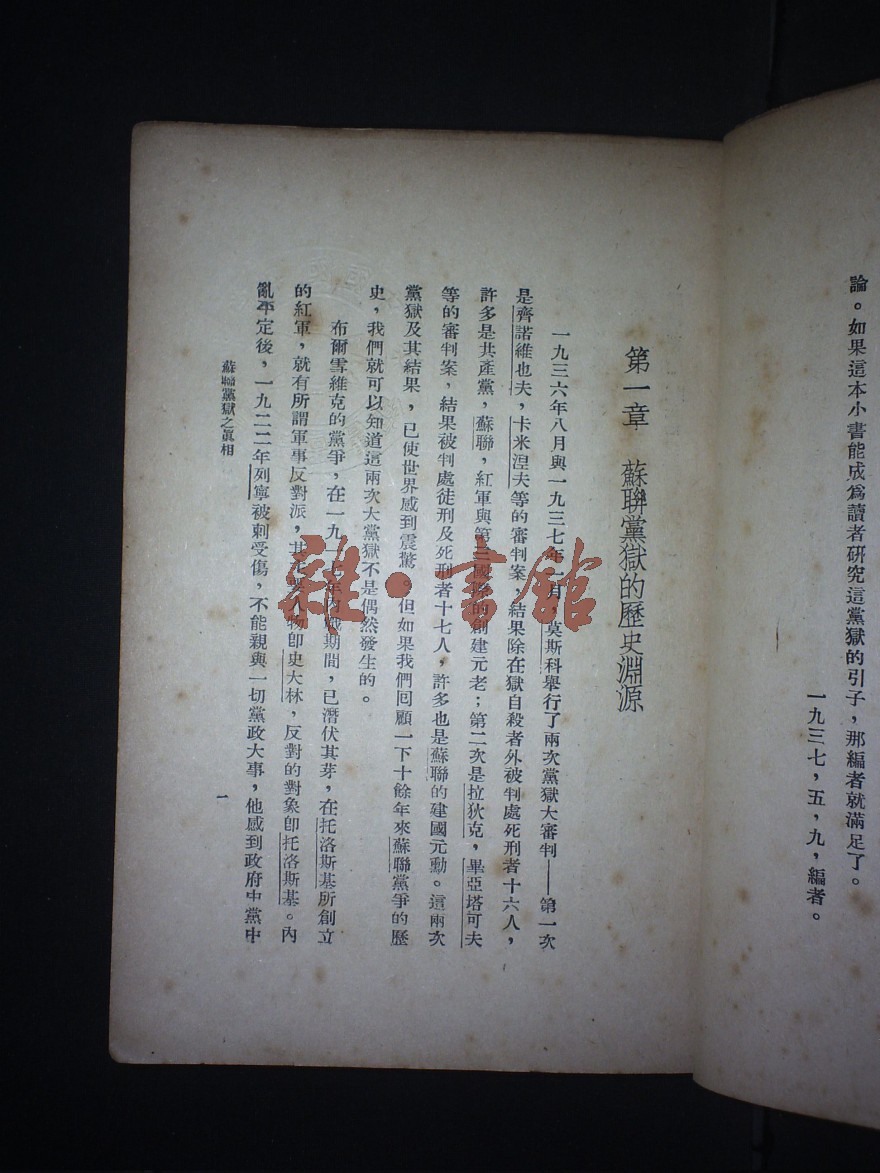 論。如果這本小書能成爲讀者研究這黨獄的引子，那編者就滿足了。
一九三七，五，九，編者。
第一章　蘇聯黨獄的歷史淵源
一九三六年八月與一九三七年一月，莫斯科舉行了兩次黨獄大審判——第一次
是齊諾維也夫，卡米涅夫等的審判案，結果除在獄自殺者外被判處死刑者十六人，
許多是共產黨，蘇聯，紅軍與第三國際的創建元老；第二次是拉狄克，畢亞塔可夫
等的審判案，結果被判處徒刑及死刑者十七人，許多也是蘇聯的建國元勳。這兩次
黨獄及其結果，已使世界感到震驚。但如果我們回顧一下十餘年來蘇聯黨爭的歷
史，我們就可以知道這兩次大黨獄不是偶然發生的。
布爾雪維克的黨爭，在一九一年內戰期間，已潛伏其芽，在托洛斯基所創立
的紅軍，就有所謂軍事反對派，其人物卽史大林，反對的對象卽托洛斯基。內
亂平定後，一九二二年列寧被刺受傷，不能親與一切黨政大事，他感到政府中黨中
蘇聯黨獄之眞相
一
雜·書館